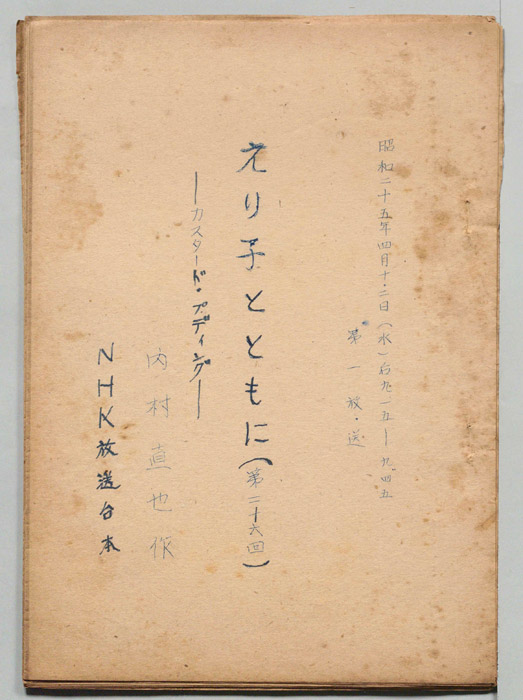 昭和二十五年四月十二日（水）后九・一五―九・四五
第一放送
えり子とともに（第二十六回）
―カスタード・プディング―
内村直也作
NHK放送台本